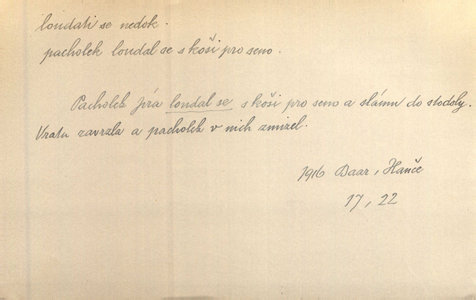 loudati se nedok.
pacholek loudal se s koši pro seno.
Pacholek Jíra loudal se s koši pro seno a slámu do stodoly.
Vrata zavrzla a pacholek v nich zmizel.
1916 Baar, Hanče
17, 22